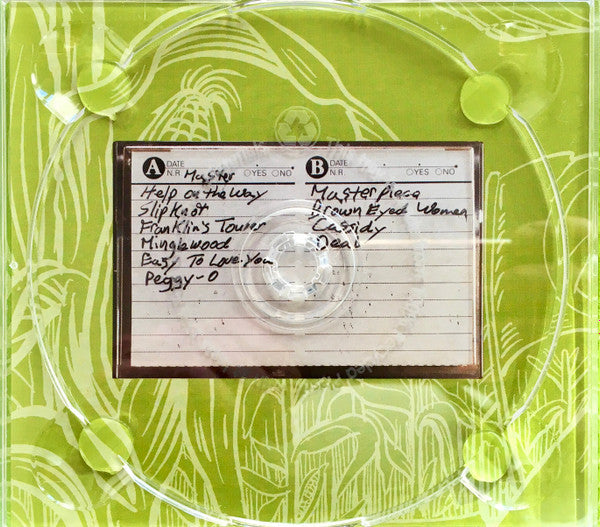 A DATE
N.R. Master YES NO
Help on the Way
Slip Knot
Franklin's Tower
Minglewood
Easy To Love You
Peggy-O
B DATE
N.R. YES NO
Masterpiece
Brown Eyed Women
Cassidy
Deal